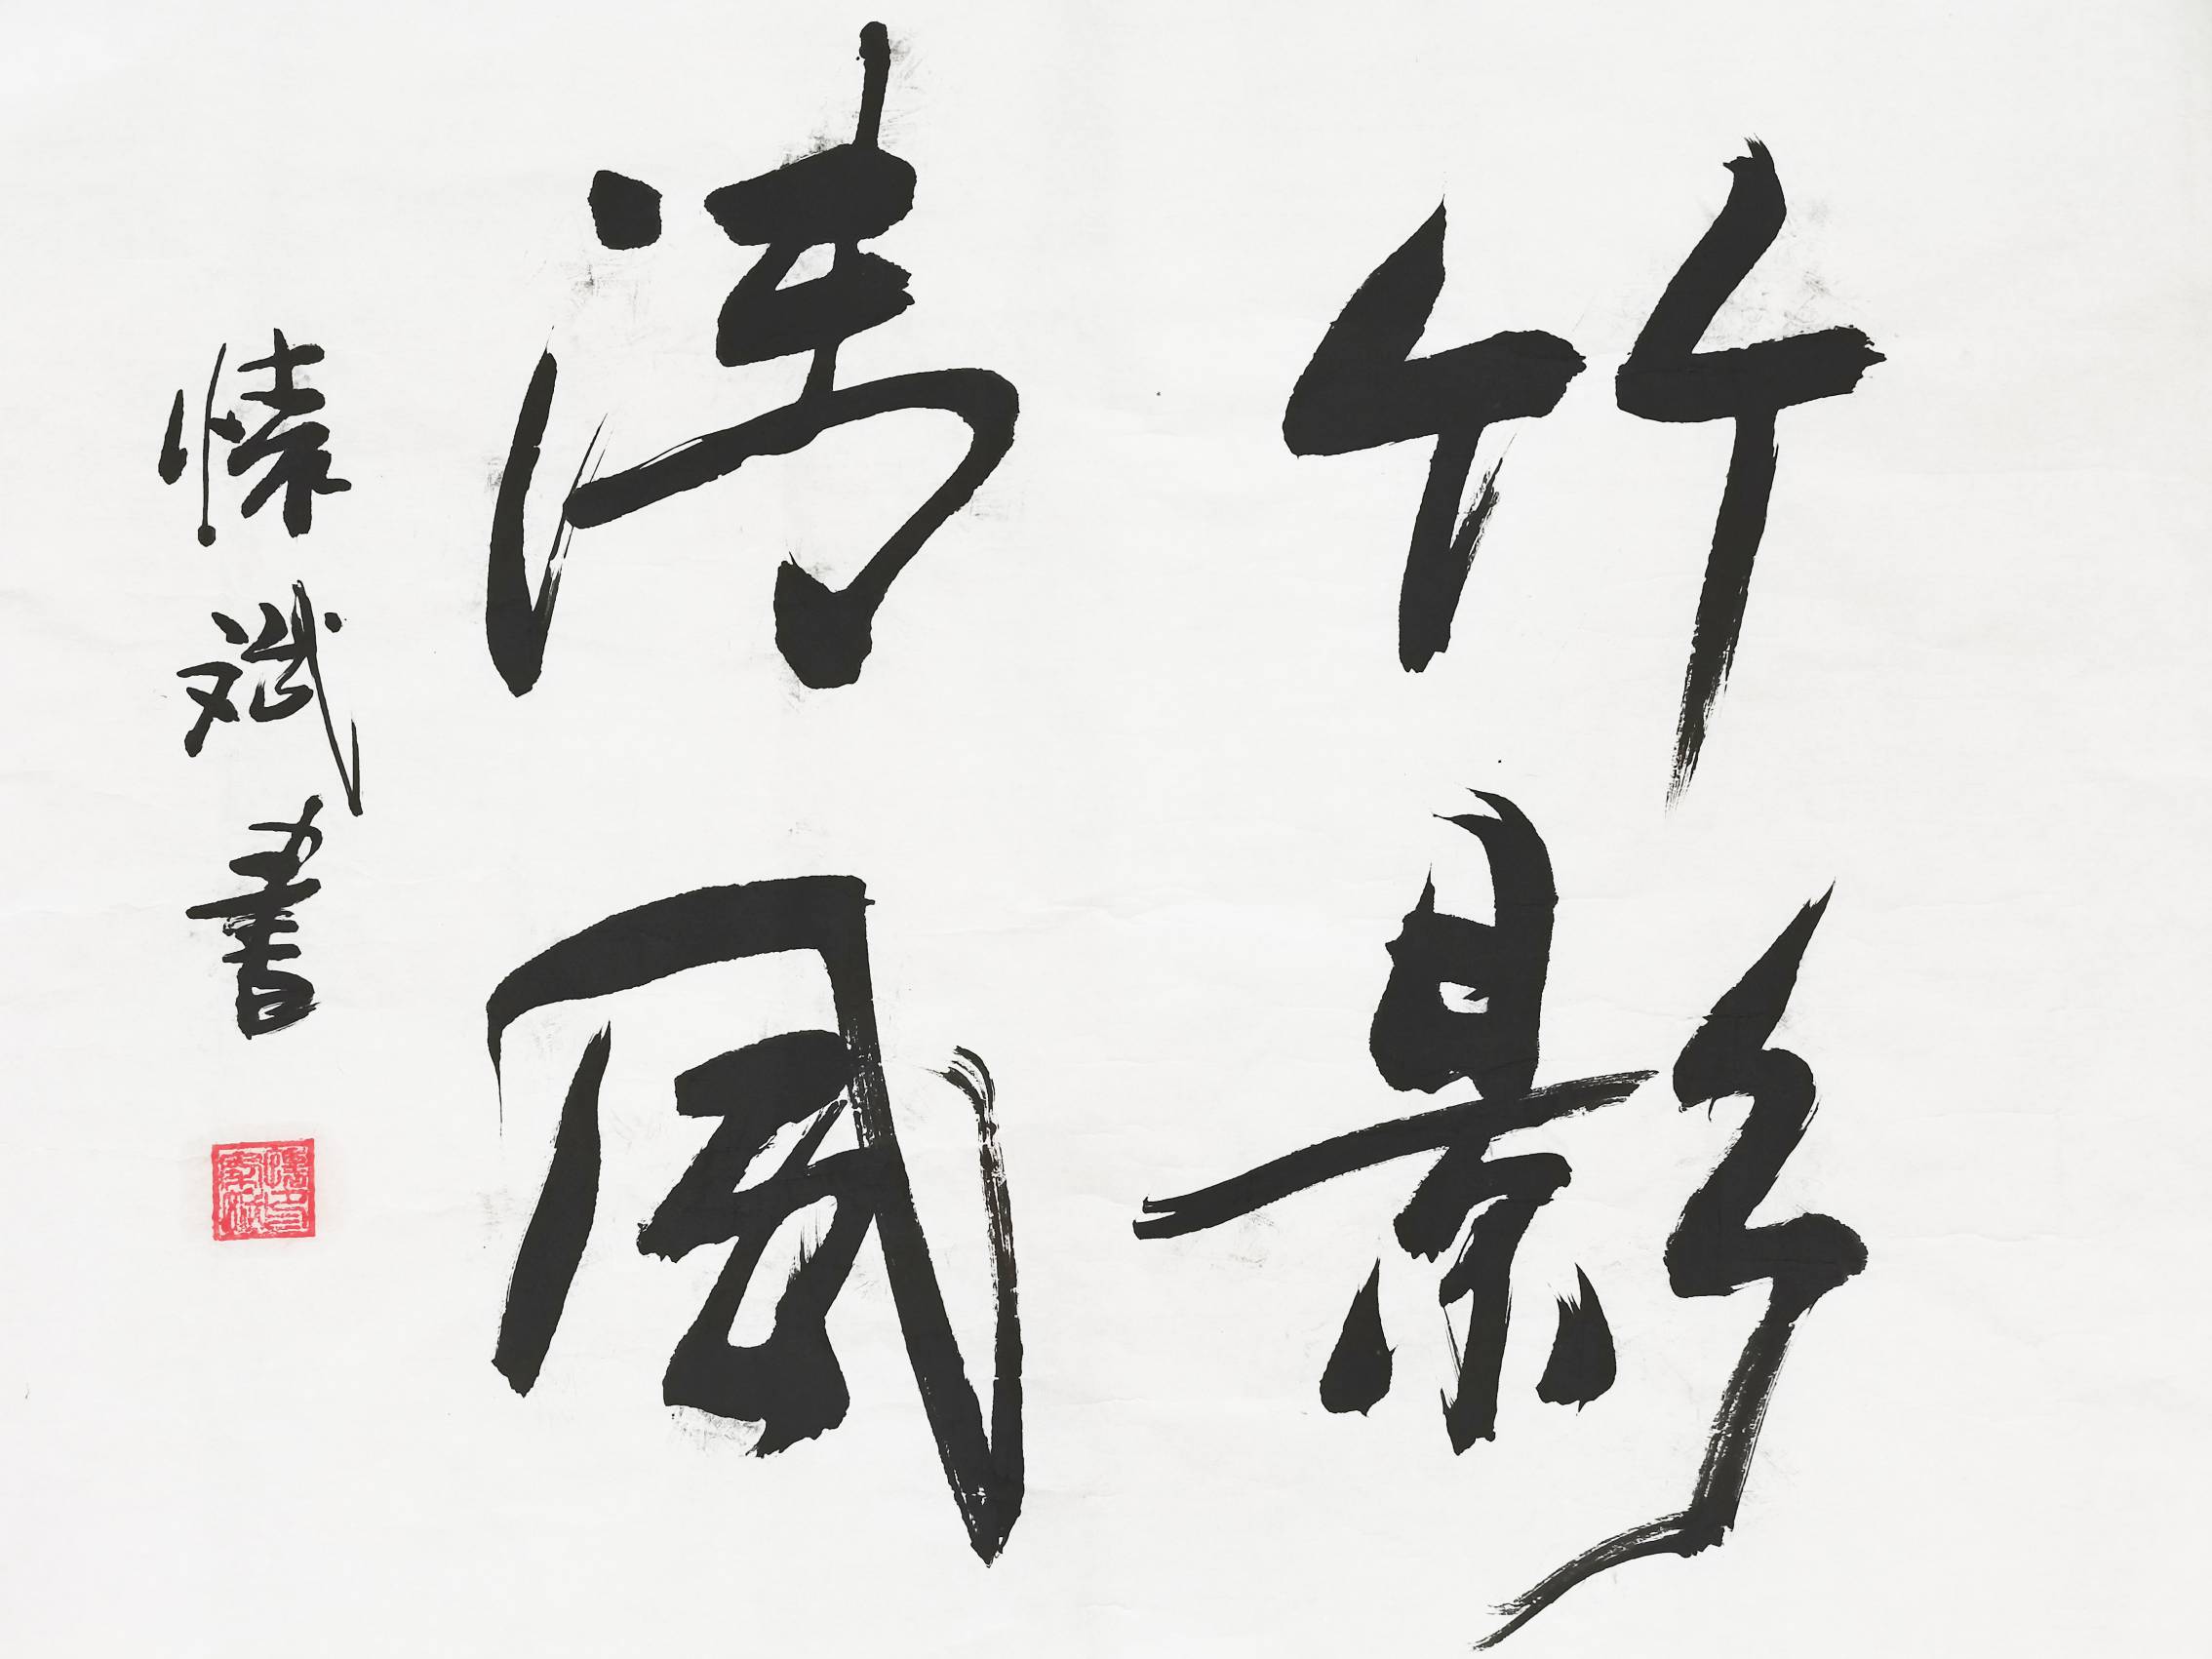 竹影
清风
愫斌書